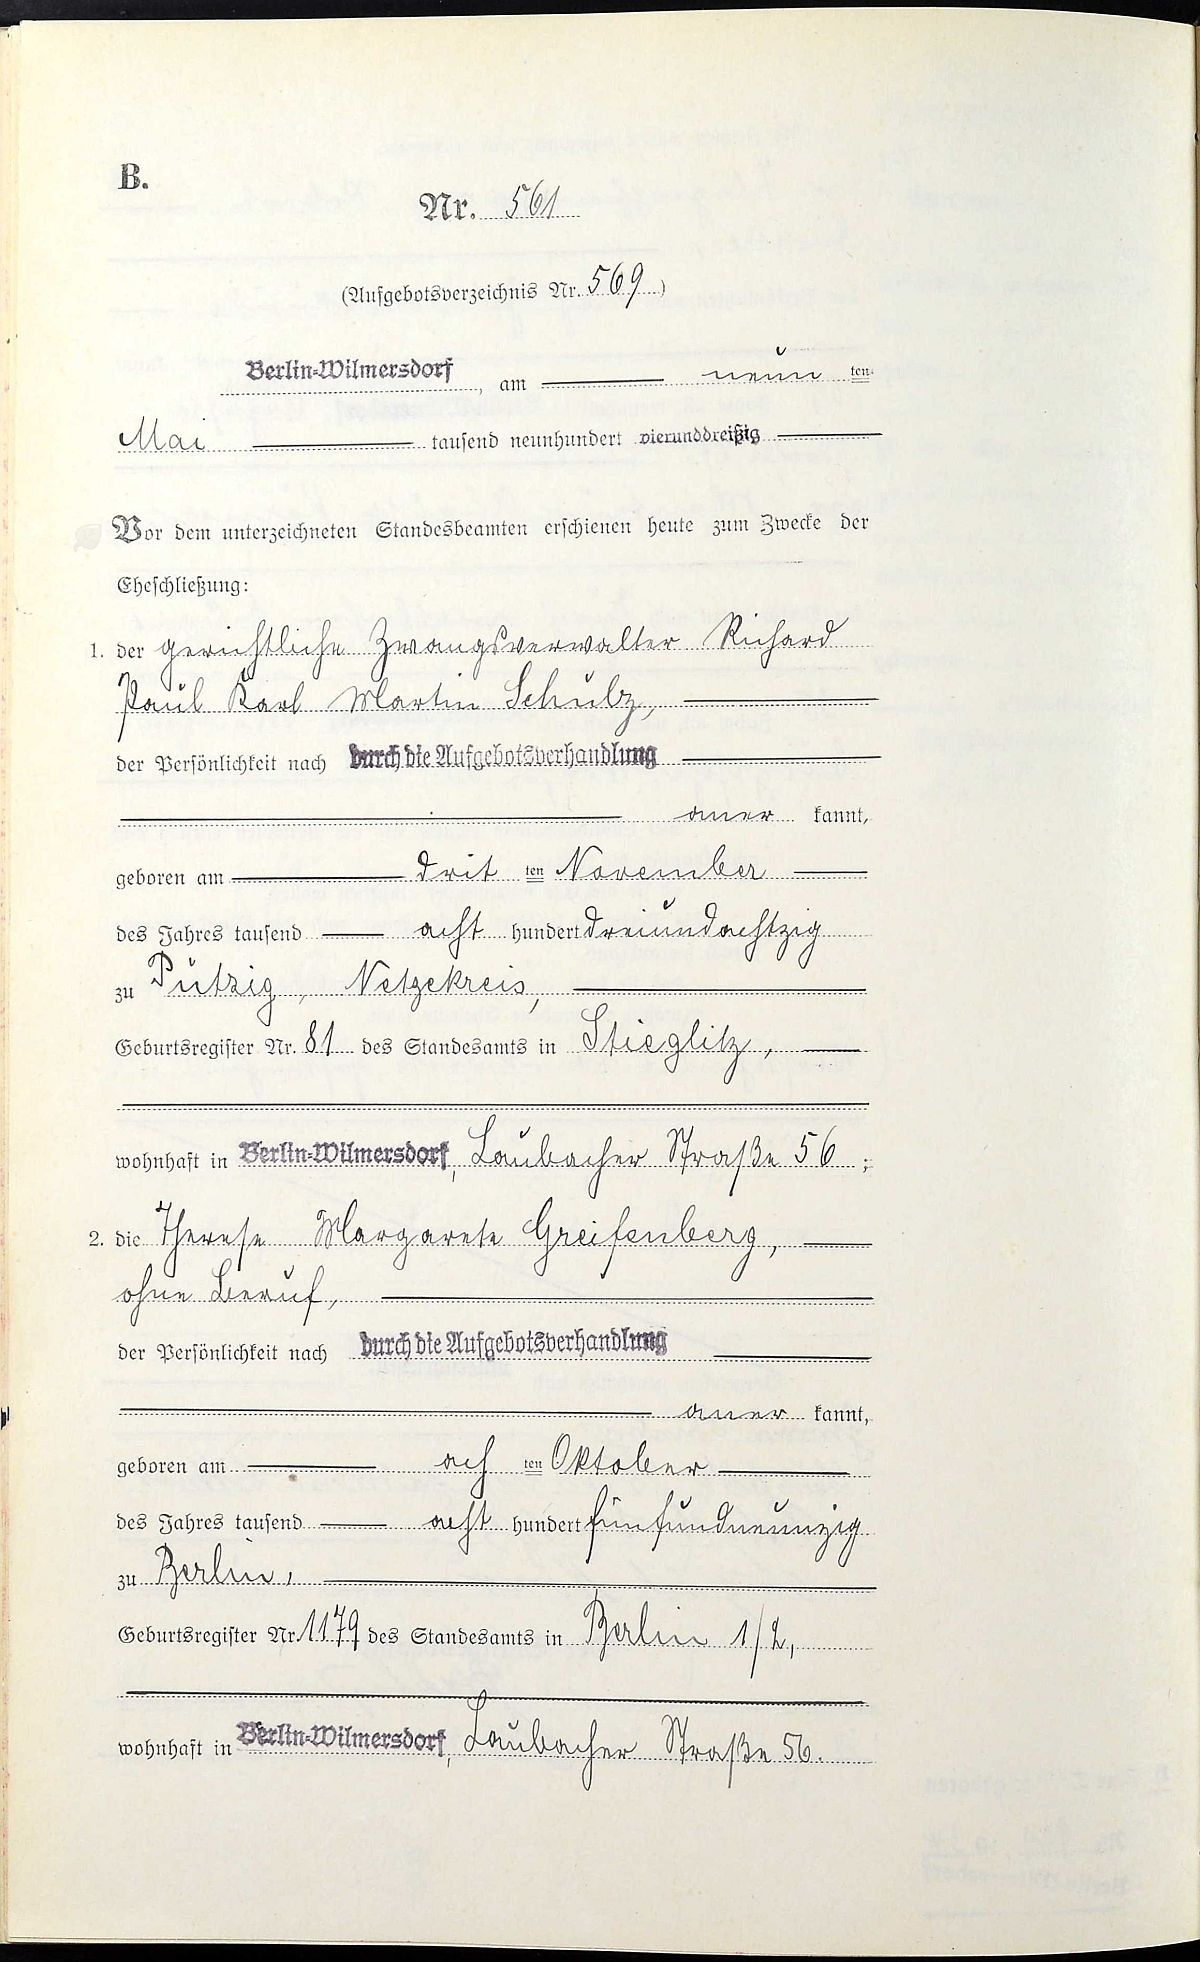 B.
Nr. 561
(Aufgebotsverzeichnis Nr. 569)
Berlin-Wilmersdorf, am neun ten
Mai tausend neunhundert vierunddreißig
Vor dem unterzeichneten Standesbeamten erschienen heute zum Zwecke der
Eheschließung:
1. der gerichtliche Zwangsverwalter Richard
Paul Karl Martin Schulz,
der Persönlichkeit nach durch die Aufgebotsverhandlung
aner kannt,
geboren am drit ten November
des Jahres tausend acht hundert dreiundachtzig
zu Putzig, Netzekreis,
Geburtsregister Nr. 81 des Standesamts in Stieglitz,
wohnhaft in Berlin-Wilmersdorf, Laubacher Straße 56;
2. die Therese Margarete Greifenberg,
ohne Beruf,
der Persönlichkeit nach durch die Aufgebotsverhandlung
aner kannt,
geboren am ach ten Oktober
des Jahres tausend acht hundert fünfundneunzig
zu Berlin,
Geburtsregister Nr. 1179 des Standesamts in Berlin 1/2,
wohnhaft in Berlin-Wilmersdorf, Laubacher Straße 56.